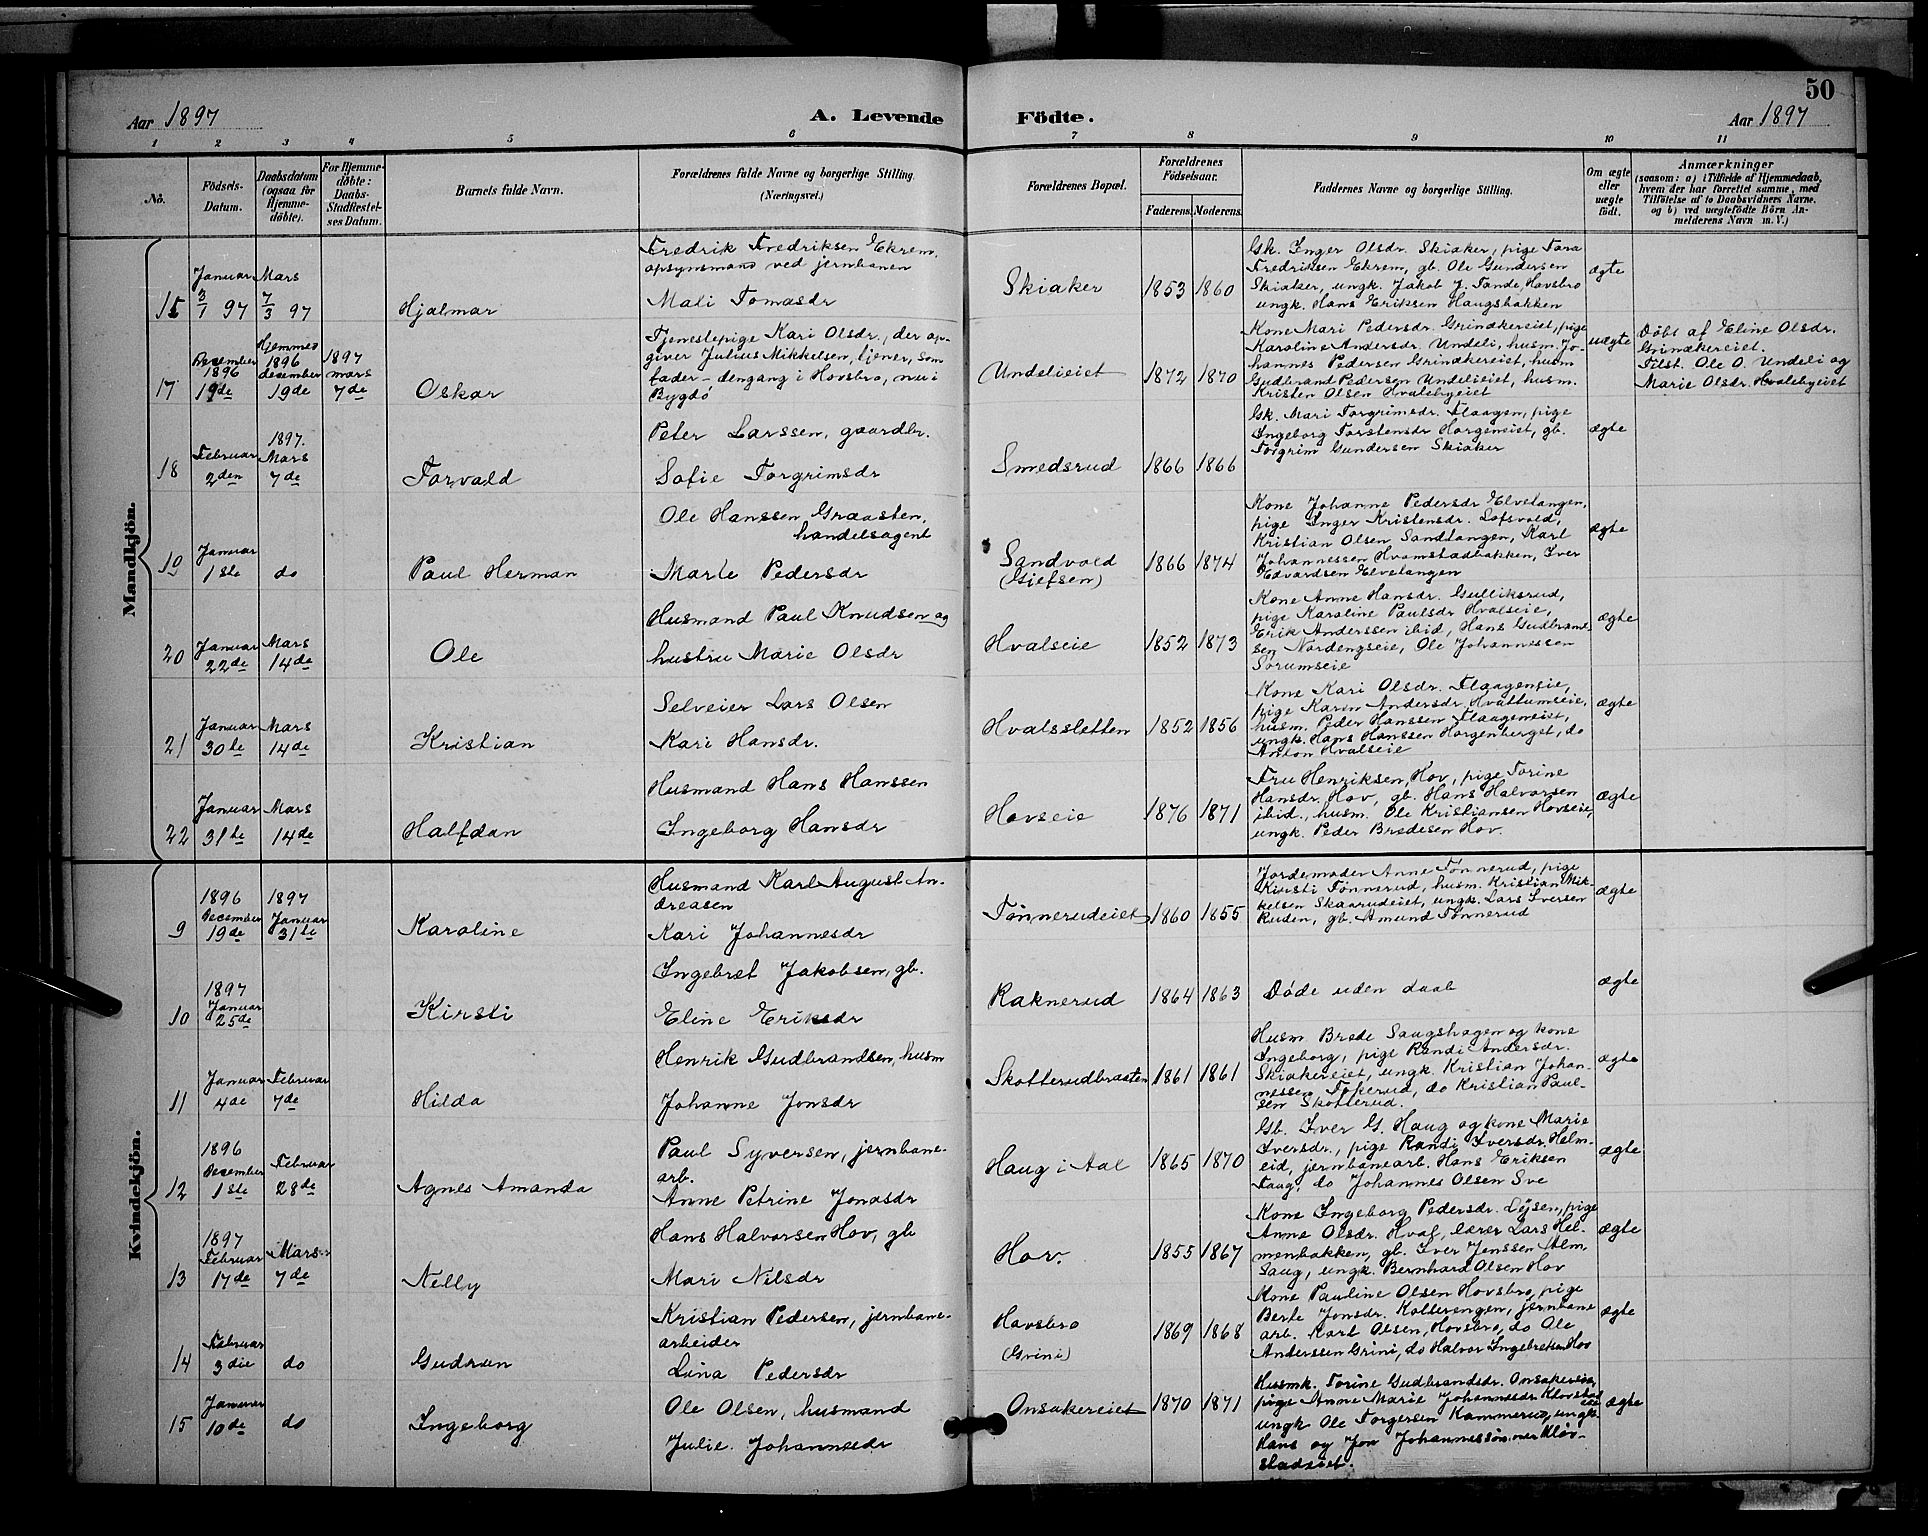 50
Aar 1897
A. Levende
Födte.
Aar 1897
1 2 3 4 5 6 7 8 9 10 11
No.
Födsels-
Datum.
Daabsdatum
(ogsaa for
Hjemme-
döbte).
For Hjemme-
döbte:
Daabs-
Stadfæstel-
ses Datum.
Barnets fulde Navn.
Forældrenes fulde Navne og borgerlige Stilling.
(Næringsvei.)
Forældrenes Bopæl.
Forældrenes
Födselsaar.
Faderens. Moderens.
Faddernes Navne og borgerlige Stilling.
Om ægte
eller
uægte
födt.
Anmærkninger
(saasom: a) i Tilfælde af Hjemmedaab,
hvem der har forrettet samme, med
Tilföielse af to Daabsvidners Navne,
og b) ved uægtefödte Börn An-
melderens Navn m. V.)
Mandkjön.
15
Januar
3/1 97
Mars
7/3 97
Hjalmar
Fredrik Fredriksen Ekrem,
opsynsmand ved jernbanen
Mali Tomasdr
Skiaker
1853 1860
Gk. Inger Olsdr. Skiaker, pige Tora
Fredriksen Ekrem, gb. Ole Gundersen
Skiaker, ungk. Jakob J. Tande, Hovsbro
ungk. Hans Eriksen Haugsbakken
ægte
17
December
1896
19de
Hjemme
1896
desember
19de
1897
mars
7de
Oskar
Tjenestepige Kari Olsdr., der op-
giver Julius Mikkelsen, tjener, som
fader - dengang i Hovsbro, nu i
Bygdö
Undelieiet
1872 1870
Kone Mari Pedersdr. Grinækereiet, pige
Karoline Andersdr. Undeli, husm. Jo-
hannes Pedersen Grinækereiet, husm
Gudbrand Pedersen Undelieiet, husm.
Kristen Olsen Hvalebyeiet
uægte
Döbt af Eline Olsdr.
Grinækereiet.
Tilst. Ole O. Undeli og
Marie Olsdr. Hvalebyeiet
18
Februar
2den
1897.
Mars
7de
Torvald
Peter Larssen, gaardbr.
Sofie Torgrimsdr
Smedsrud
1866 1866
Gk. Mari Torgrimsdr. Flaagen, pige
Ingeborg Torstensdr Horgeneiet, gb.
Torgrim Gundersen Skiaker
ægte
19
Januar
1ste
do
Paul Herman
Ole Hanssen Graasten,
handelsagent
Marte Pedersdr
Sandvold
(Gjefsen)
1866 1874
Kone Johanne Pedersdr Elvetangen,
pige Inger Kristensdr. Lofsvold,
Kristian Olsen Sandtangen, Karl
Johannessen Hvamstadbakken, Iver
Edvardsen Elvetangen
ægte
20
Januar
22de
Mars
14de
Ole
Husmand Paul Knudsen og
hustru Marie Olsdr
Hvalseie
1852 1873
Kone Anne Hansdr. Gulliksrud,
pige Karoline Paulsdr Hvalseie,
Erik Anderssen ibid, Hans Gudbrand-
sen Nordengseie, Ole Johannessen
Sörumseie
ægte
21
Januar
30te
Mars
14de
Kristian
Selveier Lars Olsen
Kari Hansdr.
Hvalssletten
1852 1856
Kone Kari Olsdr. Flaagenseie,
pige Karen Andersdr Hvattumseie,
husm. Peder Hanssen Flaageneiet,
ungk. Hans Hanssen Horgenberget, do
Anton Hvalseie
ægte
22
Januar
31te
Mars
14de
Halfdan
Husmand Hans Hanssen
Ingeborg Hansdr
Hovseie
1876 1871
Fru Henriksen, Hov, pige Torine
Hansdr. Hov, gb. Hans Halvorsen
ibid., husm. Ole Kristiansen Hovseie,
ungk. Peder Bredesen Hov.
ægte
Kvindekjön.
9
1896
December
19de
1897
Januar
31te
Karoline
Husmand Karl August An-
dreasen
Kari Johannesdr
Tönnerudeiet
1860 1855
Jordemoder Anne Tönnerud, pige
Kirsti Tönnerud, husm. Kristian Mik-
kelsen Skaarudeiet, ungk. Lars Iversen
Ruden, gb. Amund Tönnerud
ægte
10
1897
Januar
25de
Kirsti
Ingebret Jakobsen, gb.
Eline Eriksdr
Raknerud
1864 1863
Döde uden daab
ægte
11
Januar
4de
Februar
7de
Hilda
Henrik Gudbrandsen, husm
Johanne Jonsdr
Skotterudbraaten
1861 1861
Husm Brede Saugshagen og kone
Ingeborg, pige Randi Andersdr.
Skiakereiet, ungk. Kristian Johan-
nessen Tokerud, do Kristian Paul-
sen Skotterud.
ægte
12
1896
December
1ste
Februar
28de
Agnes Amanda
Paul Syversen, jernbane-
arb.
Anne Petrine Jonasdr
Haug i Aal
1865 1870
Gb. Iver G. Haug og kone Marie
Iversdr., pige Randi Iversdr. Helm-
eid, jernbanearb. Hans Eriksen
Taug, do Johannes Olsen Sve
ægte
13
1897
Februar
17de
Mars
7de
Nelly
Hans Halvorsen Hov, gb
Mari Nilsdr
Hov.
1855 1867
Kone Ingeborg Pedersdr. Löjsen, pige
Anne Olsdr. Hval, lærer Lars Hel-
menbakken, gb. Iver Jenssen Alm,
Saug, ungk. Bernhard Olsen Hov
ægte
14
Februar
3die
do
Gudrun
Kristian Pedersen, jernbane-
arbeider
Lina Pedersdr
Hovsbro
(Grini)
1869 1868
Kone Pauline Olsen Hovsbro, pige
Berte Jonsdr. Kolterengen, jernbane
arb. Karl Olsen, Hovsbro, do Ole
Anderssen Grini, do Halvor Ingebretsen Hov
ægte
15
Januar
10de
do
Ingeborg
Ole Olsen, husmand
Julie Johannesdr
Onsakereiet
1870 1871
Husmk. Torine Gudbrandsdr. Onsakereie,
pige Anne Marie Johannesdr Klovstad
ungk Ole Torgersen Kammerud, ungk.
Hans og Jon Johannessön Klöv-
stadeiet.
ægte